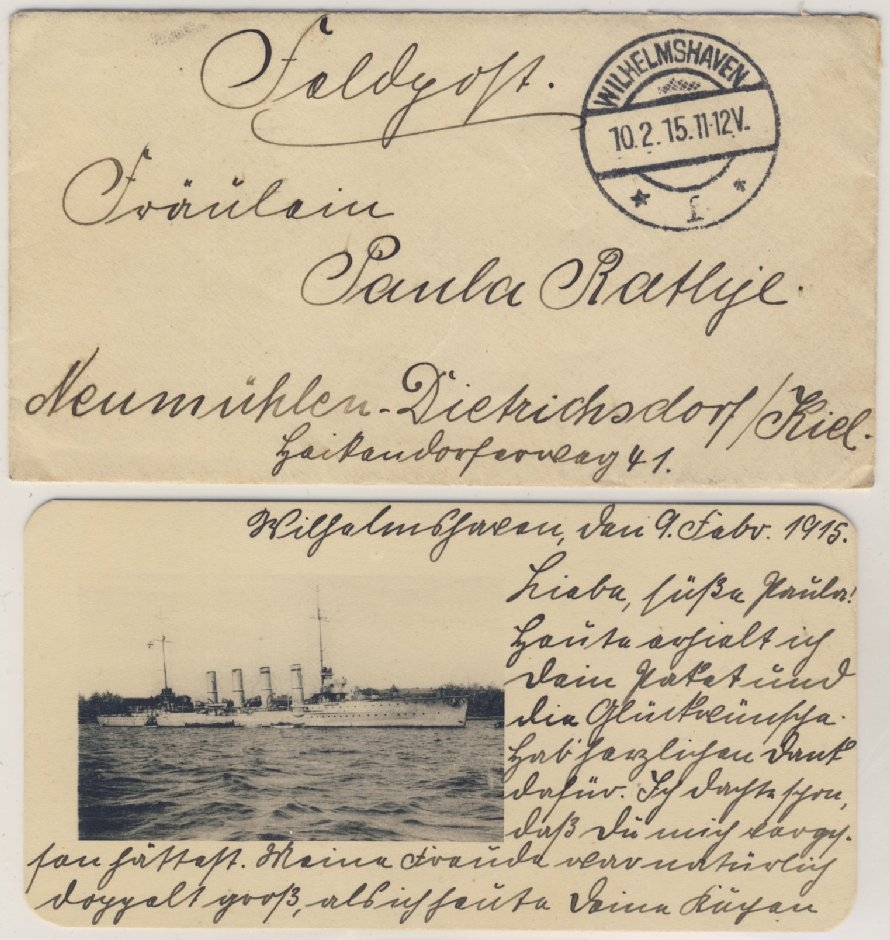 Feldpost.
WILHELMSHAVEN
10.2.15.11-12V.
* f *
Fräulein
Paula Rathje.
Neumühlen-Dietrichsdorf/Kiel.
Heikendorferweg 41.
Wilhelmshaven, den 9. Febr. 1915.
Liebe, süße Paula!
Heute erhielt ich
Dein Paket und
die Glückwünsche.
Hab' herzlichen Dank
dafür. Ich dachte schon,
daß Du mich verges-
sen hättest. Meine Freude war natürlich
doppelt groß, als ich heute Deine